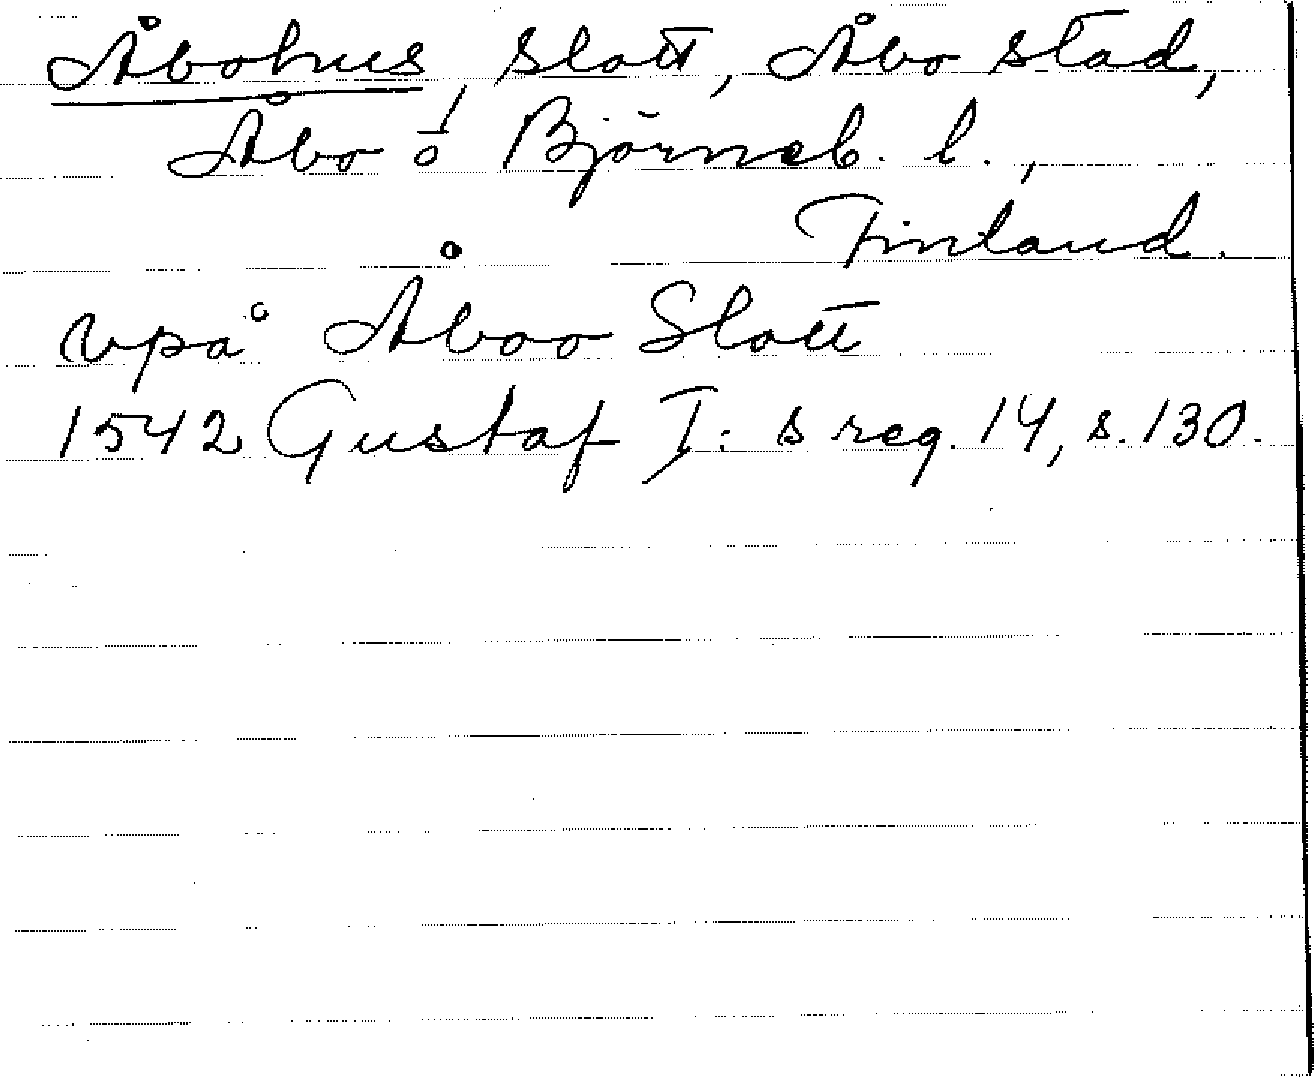 Åbohus, slott, Åbo stad,
Åbo o Björneb. l.,
Finland.
vpå Åboo Slott
1542 Gustaf I:s reg. 14, s. 130.